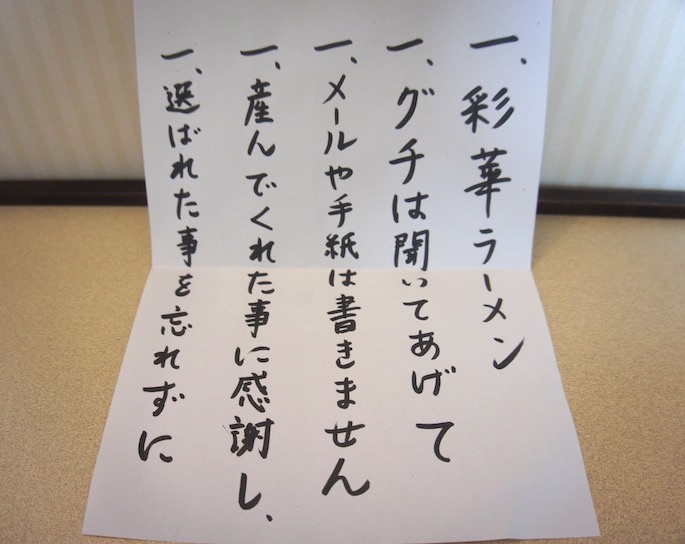 一、彩華ラーメン
一、グチは聞いてあげて
一、メールや手紙は書きません
一、産んでくれた事に感謝し、
一、選ばれた事を忘れずに